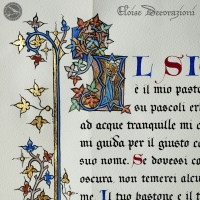 Eloise Decorazioni
IL SI
è il mio pasto
su pascoli er
ad acque tranquille mi c
mi guida per il giusto c
suo nome. Se dovessi c
oscura, non temerei alcu
me. Il tuo bastone e il t